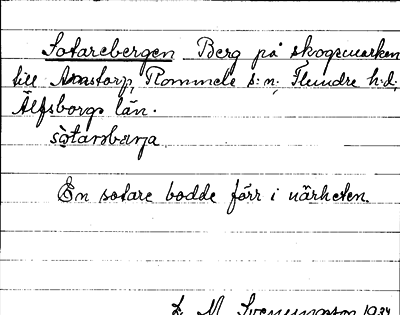 Sotarebergen Berg på skogsmarken
till Anastorp, Rommele s:n, Flundre h:d,
Älfsborgs län.
sòtarebærja
En sotare bodde förr i närheten.
Svenungsson 1934